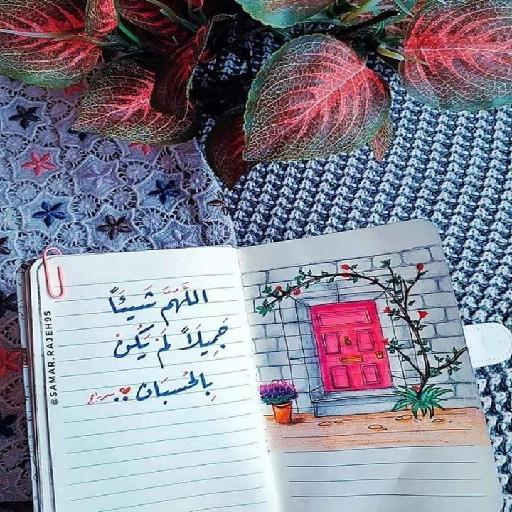 اللهم شيئاً
جَميلاً لَم يَكُن
بِالحُسبان ..
@SAMAR.RAJEH95